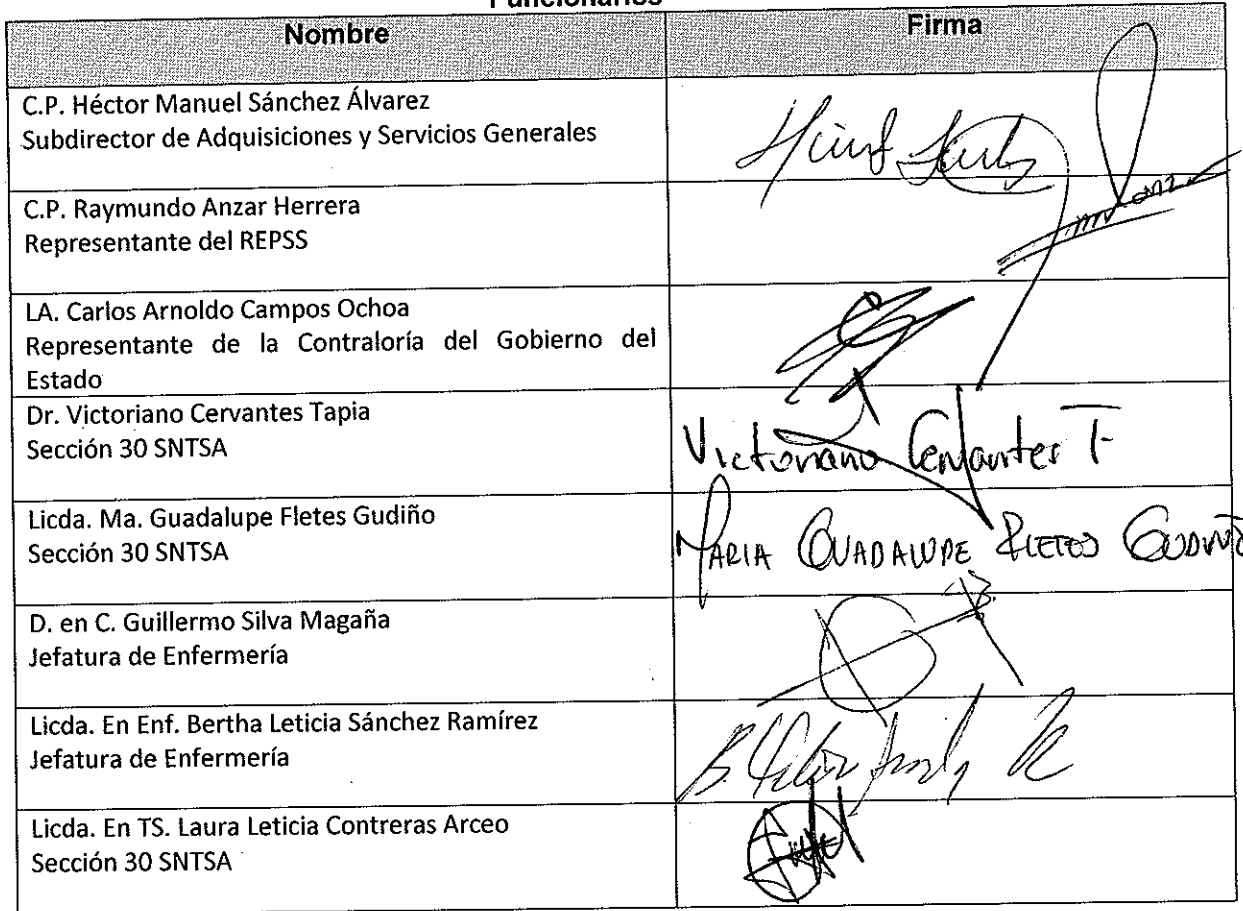 Funcionarios
Nombre
Firma
C.P. Héctor Manuel Sánchez Álvarez
Subdirector de Adquisiciones y Servicios Generales
C.P. Raymundo Anzar Herrera
Representante del REPSS
LA. Carlos Arnoldo Campos Ochoa
Representante de la Contraloría del Gobierno del
Estado
Dr. Victoriano Cervantes Tapia
Sección 30 SNTSA
Victoriano Cervantes T
Licda. Ma. Guadalupe Fletes Gudiño
Sección 30 SNTSA
MARIA GUADALUPE FLETES GUDIÑO
D. en C. Guillermo Silva Magaña
Jefatura de Enfermería
Licda. En Enf. Bertha Leticia Sánchez Ramírez
Jefatura de Enfermería
Licda. En TS. Laura Leticia Contreras Arceo
Sección 30 SNTSA